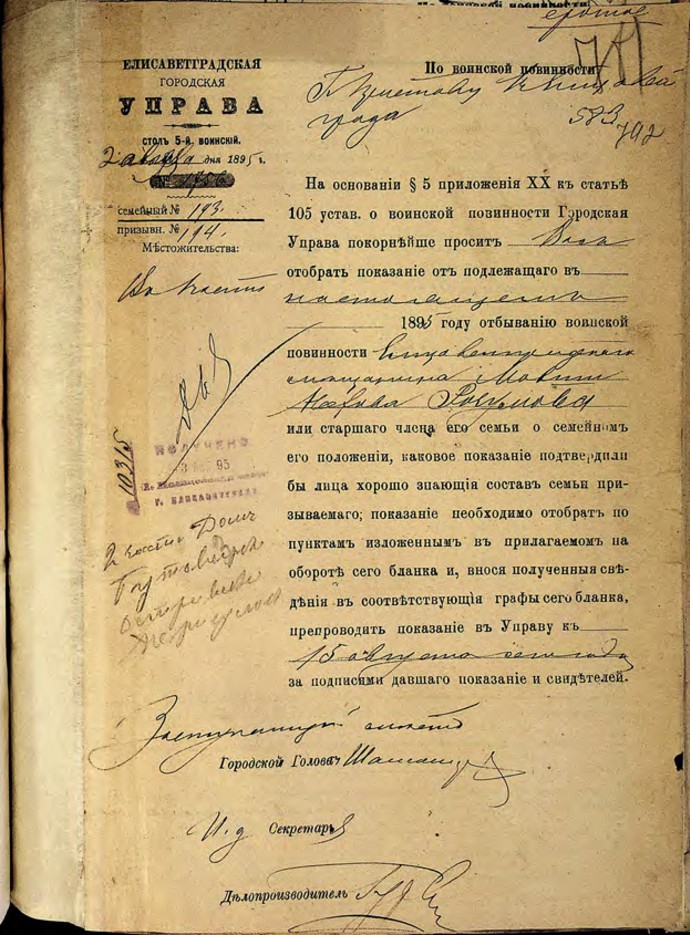 По воинской повинности
ЕЛИСАВЕТГРАДСКАЯ
ГОРОДСКАЯ
УПРАВА
СТОЛЪ 5-й. ВОИНСКІЙ.
2 августа дня 1895 г.
№ 1756
семейный № 193.
призывн. № 194.
Мѣстожительства:
Г. Приставу
града
583
792
На основаніи § 5 приложенія XX къ статьѣ
105 устав. о воинской повинности Городская
Управа покорнѣйше проситъ Васъ
отобрать показаніе отъ подлежащаго въ
настоящемъ
1895 году отбыванію воинской
повинности Елисаветградскаго
мѣщанина
или старшаго члена его семьи о семейномъ
его положеніи, каковое показаніе подтвердили
бы лица хорошо знающія составъ семьи при-
зываемаго; показаніе необходимо отобрать по
пунктамъ изложеннымъ въ прилагаемомъ на
оборотѣ сего бланка и, внося полученныя свѣ-
дѣнія въ соотвѣтствующія графы сего бланка,
препроводить показаніе въ Управу къ
15 августа сего года
за подписями давшаго показаніе и свидѣтелей.
10315
ПОЛУЧЕНО
95
Г. ЕЛИСАВЕТГРАДА
2 части Домъ
Заступающій мѣсто
Городской Голова
И. д Секретарь
Дѣлопроизводитель